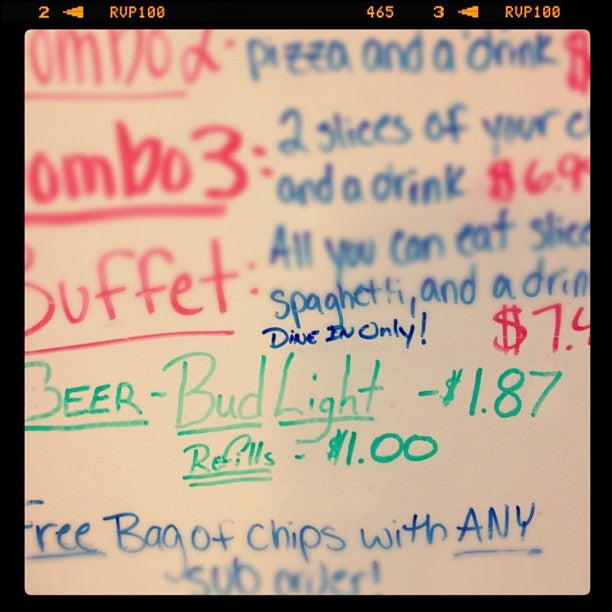 2 RVP100 465 3 RVP100
pizza and a drink $
ombo 3: 2 slices of your c
and a drink $6.9
Buffet: All you can eat slice
spaghetti, and a drin
Dine In Only! $7.4
BEER - Bud Light - $1.87
Refills - $1.00
Free Bag of chips with ANY
sub order!